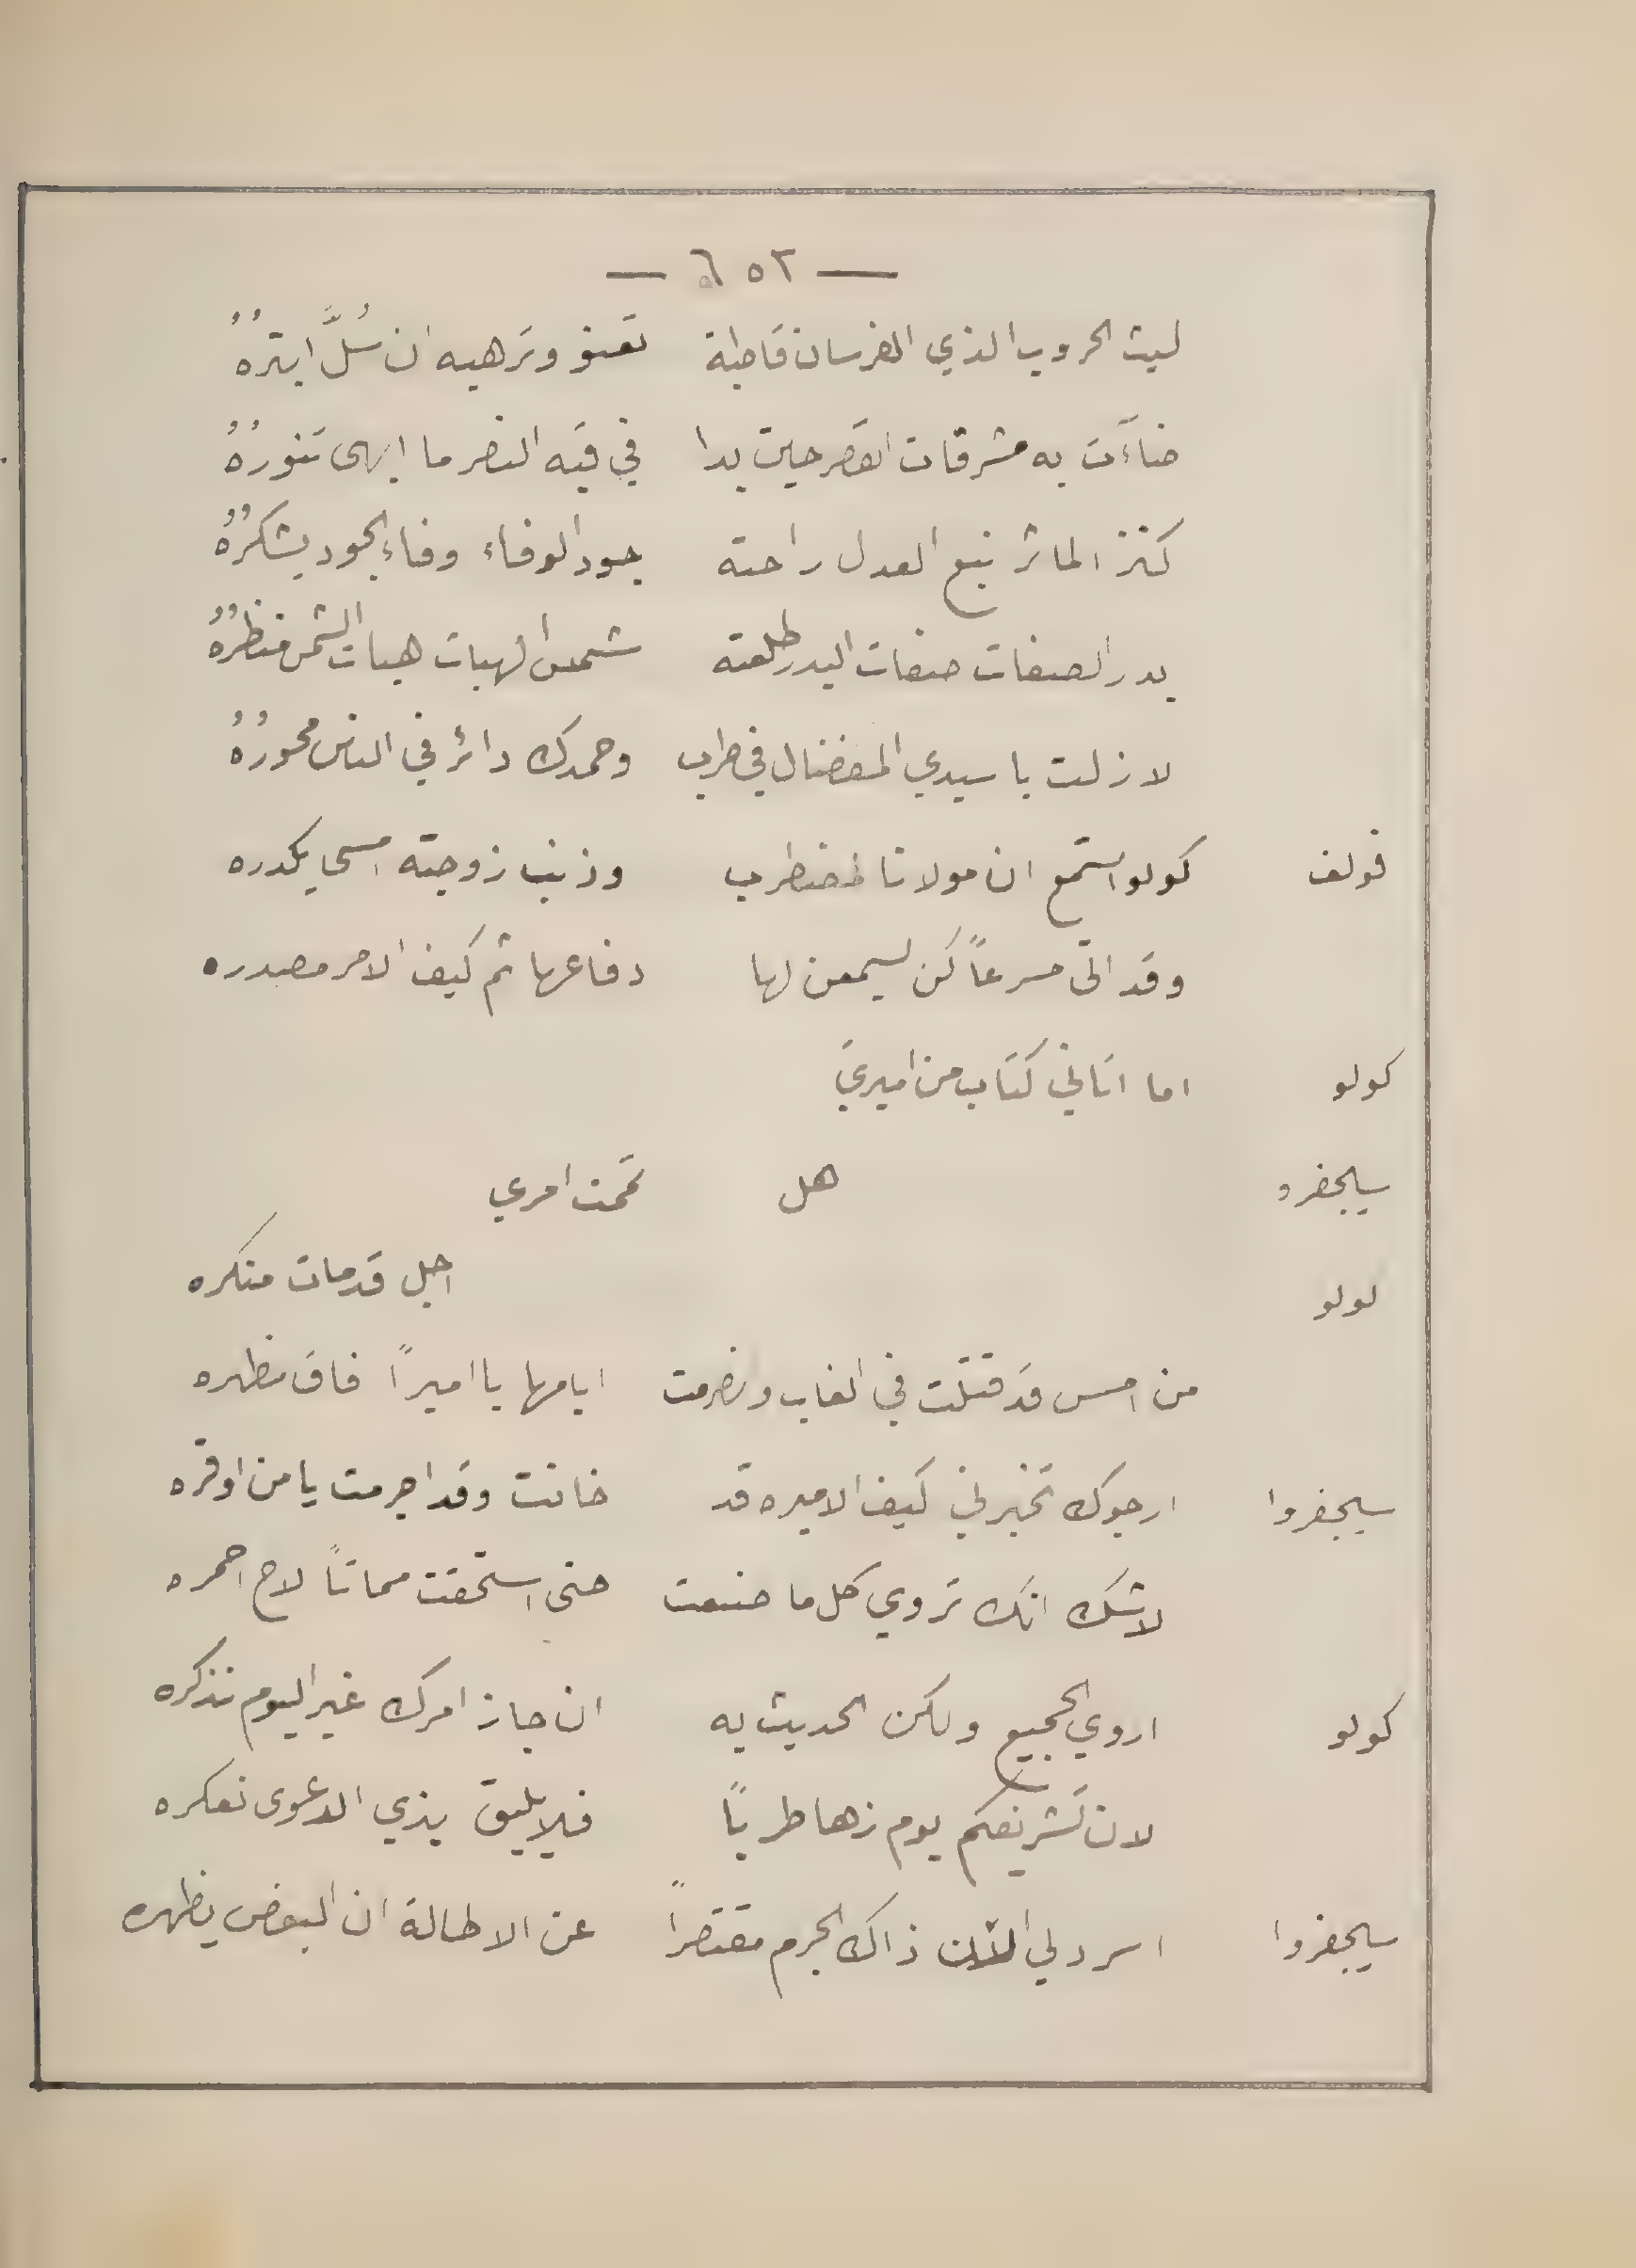 — ٦٥٢ —
ليث الحروب الذي الفرسان قاطبة تعنو وترهبه ان سُلَّ ابترهُ
ضاءَت به مشرقات القصر حين بدا في قبه النصر ما ابهى تنورُهُ
كنز الماثر نبع العدل راحته جود الوفاء وفاء الجود يشكرُهُ
بدر الصفات صفات البدر طلعته شمس الهبات هبات الشمس منظرُهُ
لا زلت يا سيدي المفضال في طرب وحمدك دائر في الناس محورُهُ
قولف كولو استمع ان مولانا لمضطرب وذنب زوجته امسى يكدره
وقد اتى مسرعاً كن ليسمعن لها دفاعها ثم كيف الامر مصدره
كولو اما اتاني كتاب من اميري
سيجفرو هل تممت امري
لولو اجل قد مات منكره
من امس قد قتلت في الغاب وانصرمت ايامها يا اميراً فاق مظهره
سيجفروا ارجوك تخبرني كيف الاميره قد خانت وقد اجرمت يا من اوقره
لا شك انك تروي كل ما صنعت حتى استحقت مماتاً لاح احمره
كولو اروي الجميع ولكن الحديث به ان جاز امرك غير اليوم نذكره
لان تشريفكم يوم زها طربًا فلا يليق بذي الدعوى نعكره
سيجفروا اسرد لي الان ذاك الجرم مقتصراً عن الاطالة ان البعض يظهره